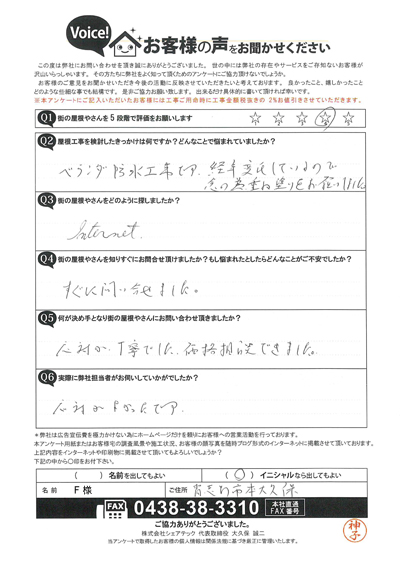 Voice!
お客様の声をお聞かせください
この度は弊社にお問い合わせを頂き誠にありがとうございました。世の中には弊社の存在やサービスをご存知ないお客様が
沢山いらっしゃいます。その方たちに弊社をよく知って頂くためのアンケートにご協力頂けないでしょうか。
お客様のご意見をお聞かせいただき今後の活動に反映させていただきたいと考えております。良かったこと、嬉しかったこと
どのような些細な事でも結構です。是非ご協力お願い致します。出来るだけ具体的に書いて頂ければ幸いです。
※本アンケートにご記入いただいたお客様には工事ご用命時に工事金額税抜きの2%お値引きさせていただきます。
Q1 街の屋根やさんを5段階で評価をお願いします ☆ ☆ ☆ ☆ ☆
Q2 屋根工事を検討したきっかけは何ですか?どんなことで悩まれていましたか?
ベランダ防水工事です。経年変化しているので
Q3 街の屋根やさんをどのように探しましたか?
Internet.
Q4 街の屋根やさんを知りすぐにお問合せ頂けましたか?もし悩まれたとしたらどんなことがご不安でしたか?
すぐに問い合せました。
Q5 何が決め手となり街の屋根やさんにお問い合わせ頂きましたか?
応対が丁寧でした。価格相談できました。
Q6 実際に弊社担当者がお伺いしていかがでしたか?
応対がよかったです。
*弊社は広告宣伝費を極力かけない為にホームページだけを頼りにお客様への営業活動を行っております。
本アンケート用紙またはお客様宅の調査風景や施工状況、お客様の顔写真を随時ブログ形式のインターネットに掲載させて頂いております。
上記内容をインターネットや印刷物に掲載させて頂いてもよろしいでしょうか?
下記の中から○印をお付下さい。
( )名前を出してもよい (○)イニシャルなら出してもよい
名前 F様 ご住所
FAX 0438-38-3310 本社直通 FAX番号
ご協力ありがとうございました。
株式会社シェアテック 代表取締役 大久保 誠二
当アンケートで取得したお客様の個人情報は関係法令に基づき厳正に管理いたします。
神子